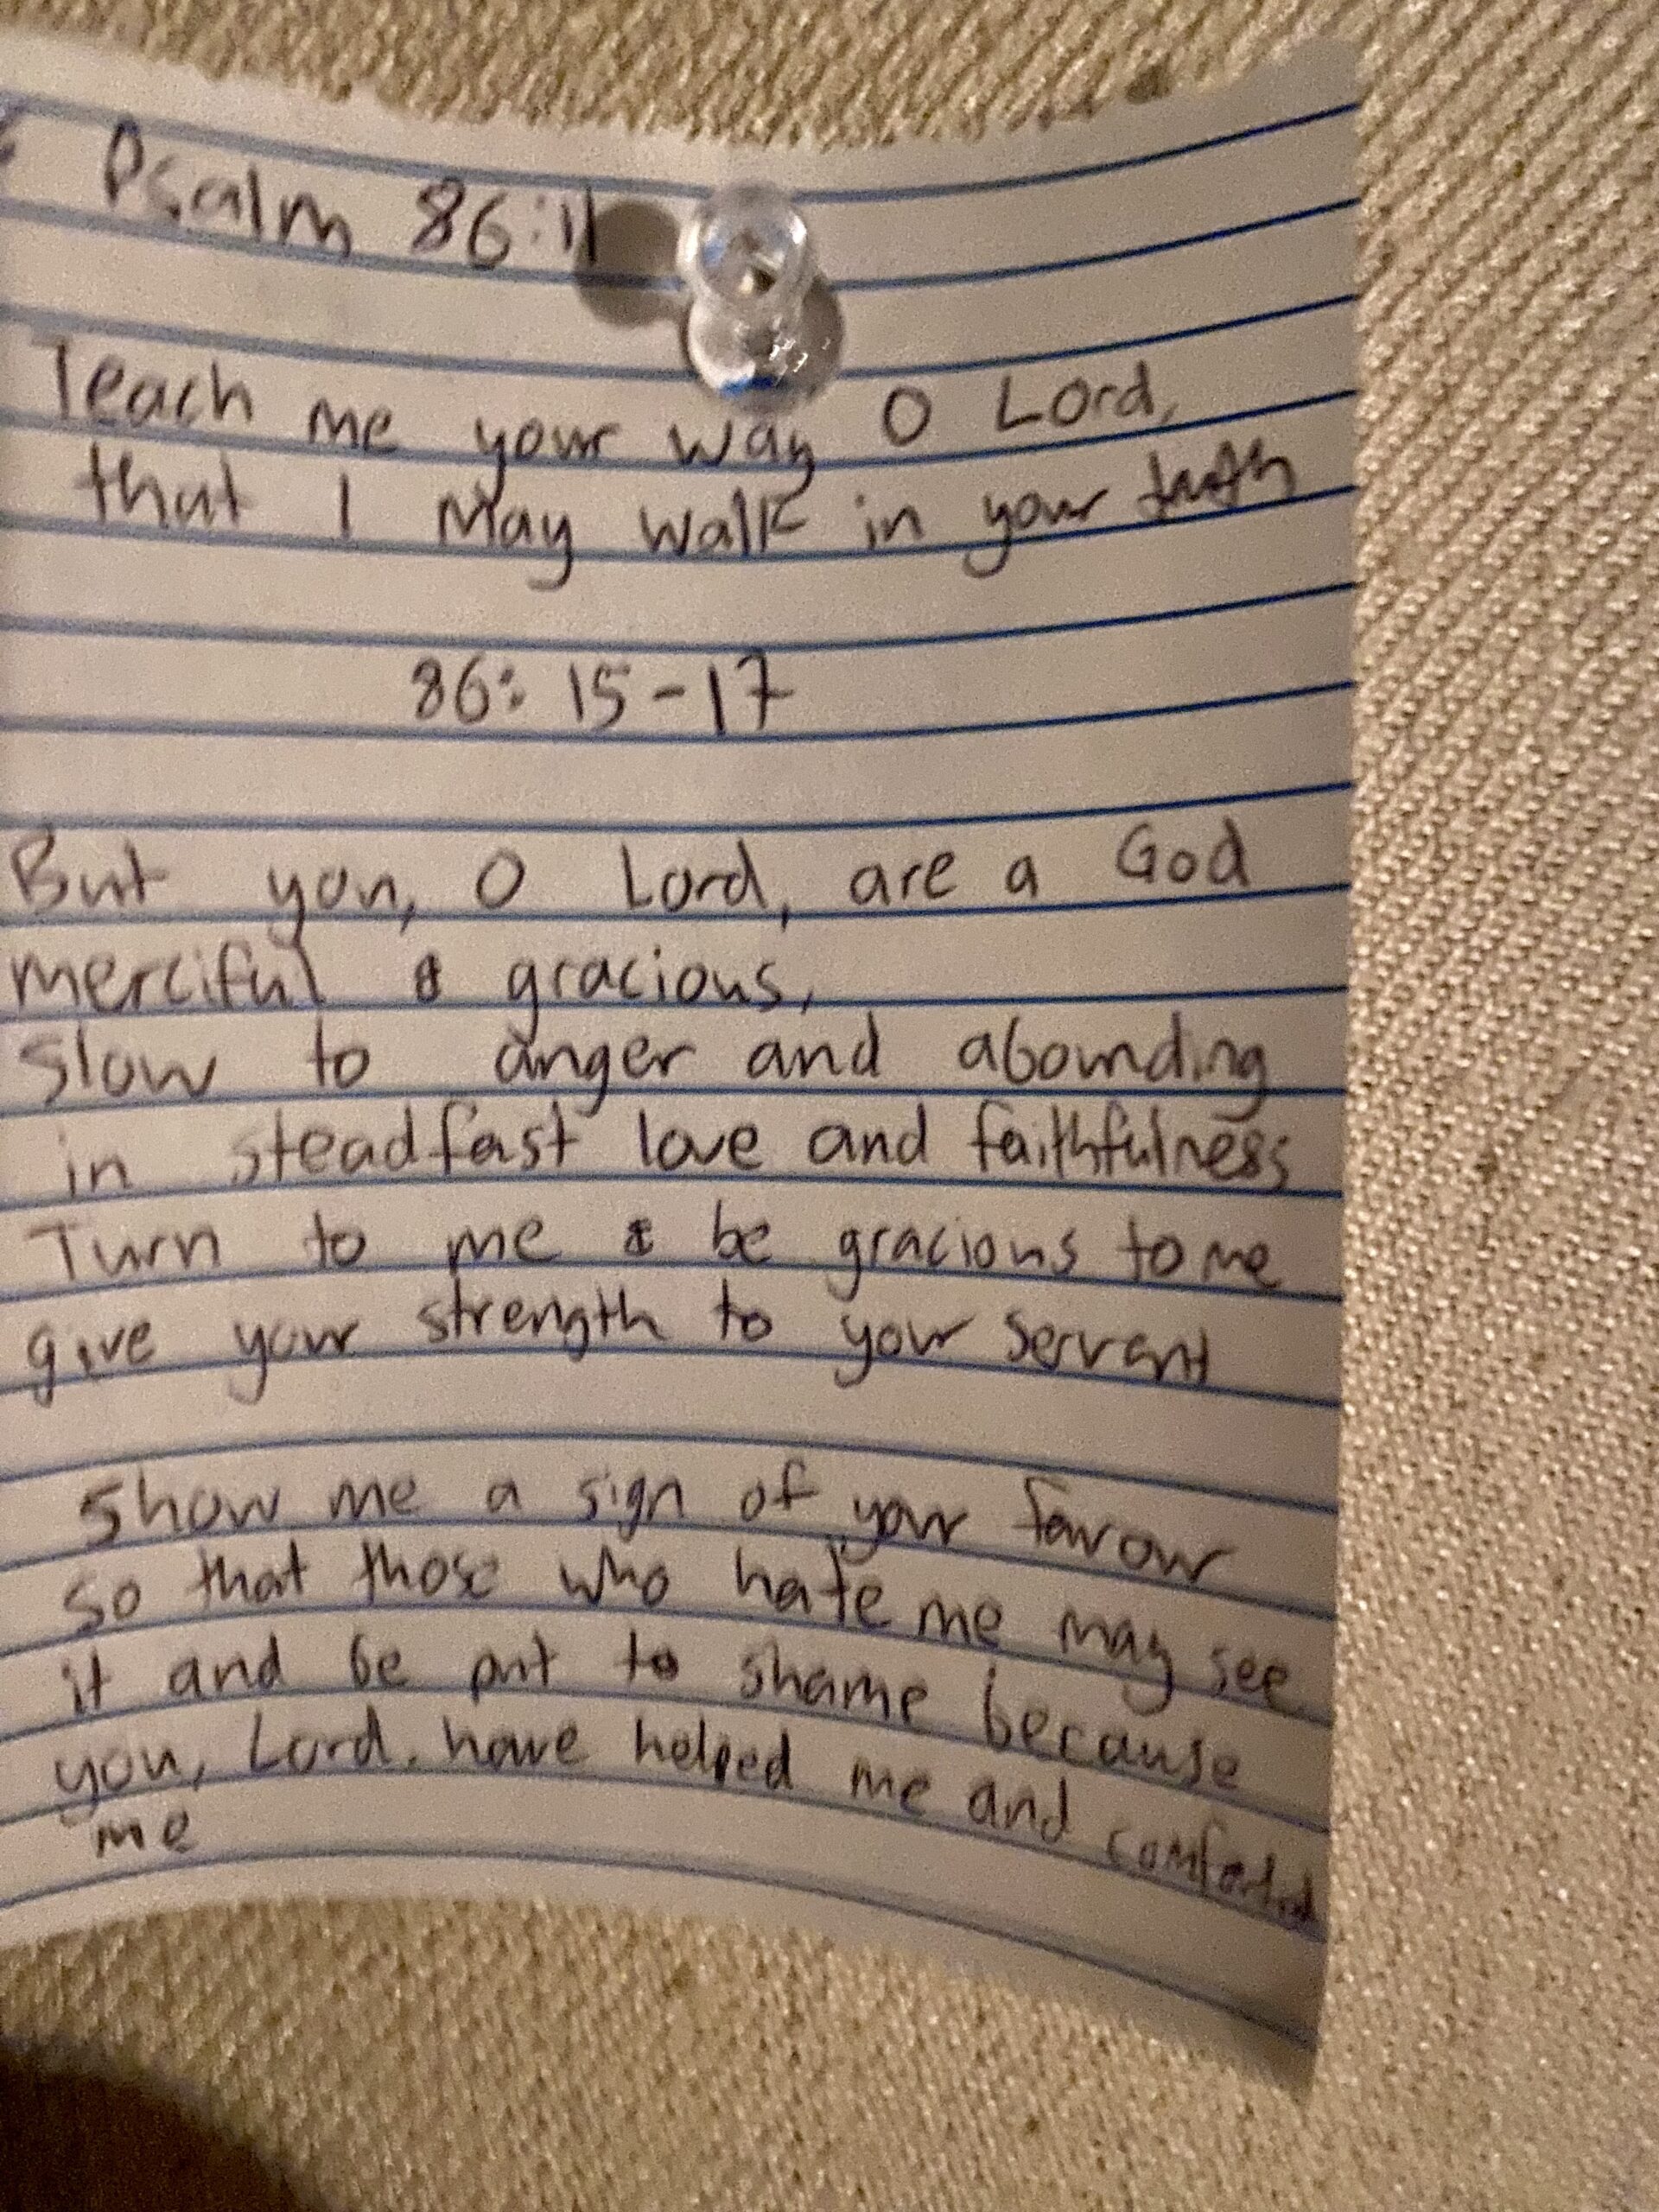 Psalm 86:11
Teach me your way O Lord,
that I may walk in your truth
86: 15-17
But you, O Lord, are a God
merciful & gracious,
slow to anger and abounding
in steadfast love and faithfulness
Turn to me & be gracious to me
give your strength to your servant
show me a sign of your favour
so that those who hate me may see
it and be put to shame because
you, Lord, have helped me and comforted
me